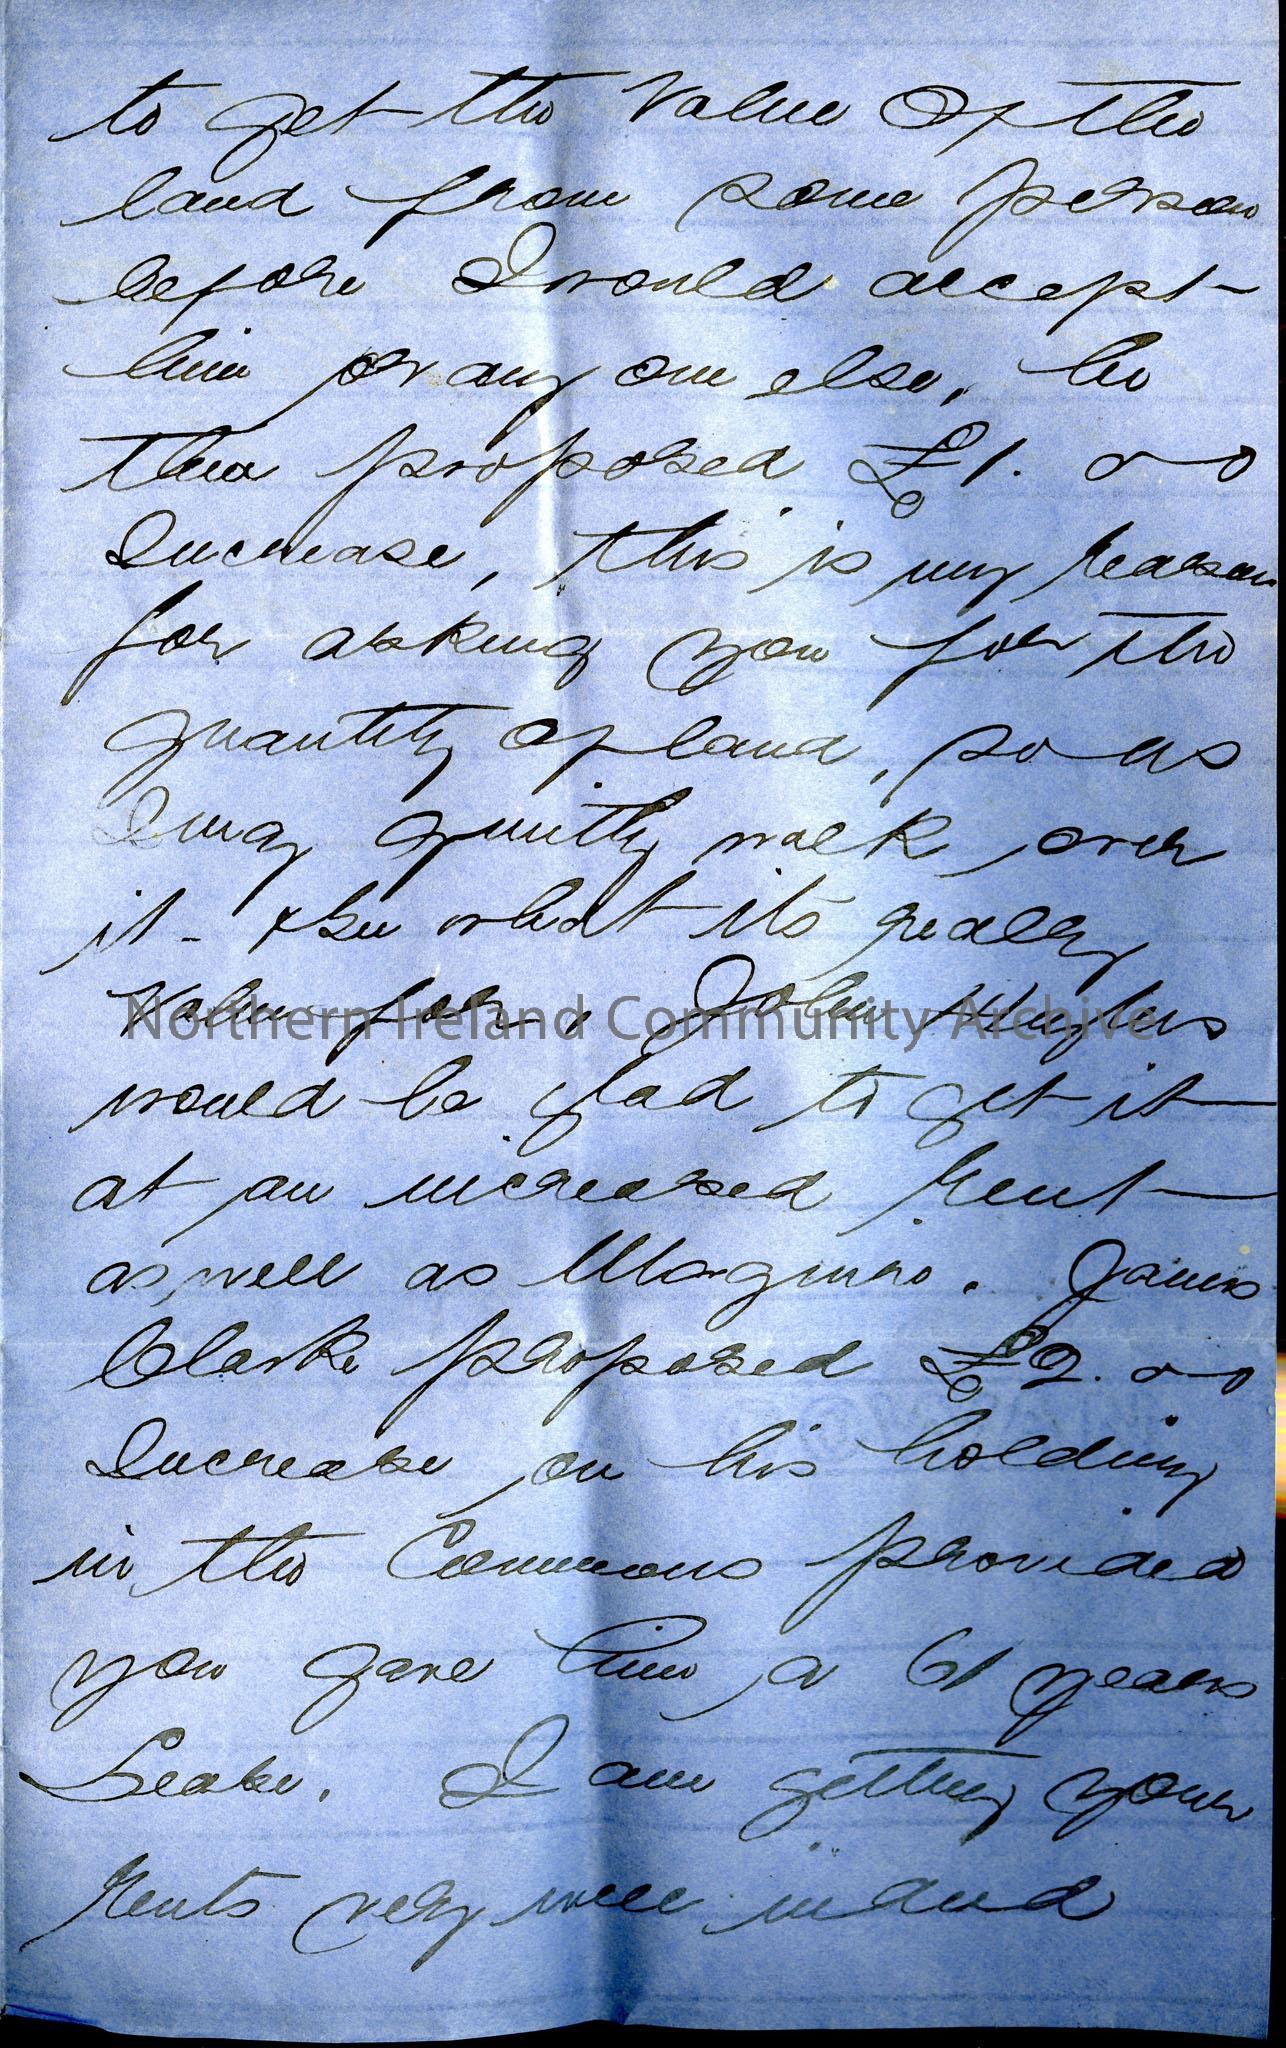 to get the Value Of the
land from some person
before I would accept
him or any one else, he
then proposed £1. 0 0
Increase, this is my reason
for asking you for the
quantity of land, so as
I may quietly walk over
it. & See what its really
Value for. John Hughes
would be glad to get it
at an increased rent
as well as Maginno. James
Clarke proposed £2. 0 0
Increase on his holding
in the Commons provided
you gave him a 61 years
Lease. I am getting your
rents very well indeed
Northern Ireland Community Archive